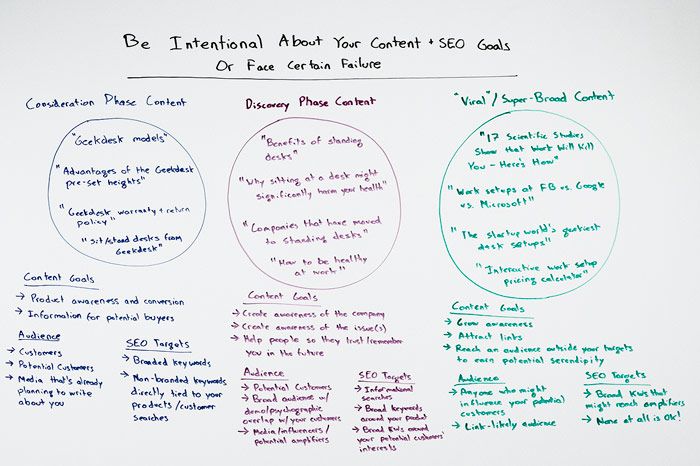 Be Intentional About Your Content + SEO Goals
Or Face Certain Failure
Consideration Phase Content
"Geekdesk models"
"Advantages of the Geekdesk
pre-set heights"
"Geekdesk warranty + return
policy"
"Sit/stand desks from
Geekdesk"
Content Goals
→ Product awareness and conversion
→ Information for potential buyers
Audience
→ Customers
→ Potential Customers
→ Media that's already
planning to write
about you
SEO Targets
→ Branded keywords
→ Non-branded keywords
directly tied to your
products/customer
searches
Discovery Phase Content
"Benefits of standing
desks"
"Why sitting at a desk might
significantly harm your health"
"Companies that have moved
to standing desks"
"How to be healthy
at work"
Content Goals
→ Create awareness of the company
→ Create awareness of the issue(s)
→ Help people so they trust/remember
you in the future
Audience
→ Potential Customers
→ Broad audience w/
demo/psychographic
overlap w/your customers
→ Media/influencers/
potential amplifiers
SEO Targets
→ Informational
searches
→ Broad keywords
around your product
→ Broad KWs around
your potential customers'
interests
"Viral"/Super-Broad Content
"17 Scientific Studies
Show that Work Will Kill
You - Here's How"
"Work setups at FB vs. Google
vs. Microsoft"
"The startup world's geekiest
desk setups"
"Interactive work setup
pricing calculator"
Content Goals
→ Grow awareness
→ Attract links
→ Reach an audience outside your targets
to earn potential serendipity
Audience
→ Anyone who might
influence your potential
customers
→ Link-likely audience
SEO Targets
→ Broad KWs that
might reach amplifiers
→ None at all is OK!